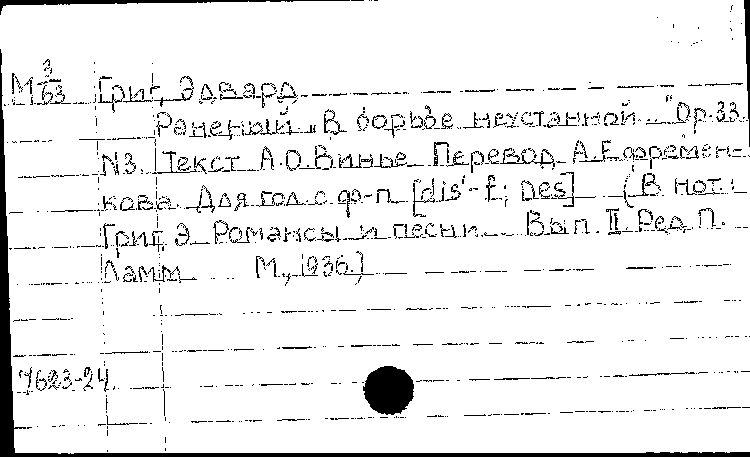 М 3/63 Григ, Эдвард
Раненый „В борьбе неустанной..." Op. 33.
N3. Текст А.О. Винье. Перевод А. Ефремен-
кова. Для гол. с ф-п. [dis'-f²; Des] (В нот.:
Григ, Э. Романсы и песни. Вып. II. Ред. П.
Ламм М., 1936.)
7623-24.